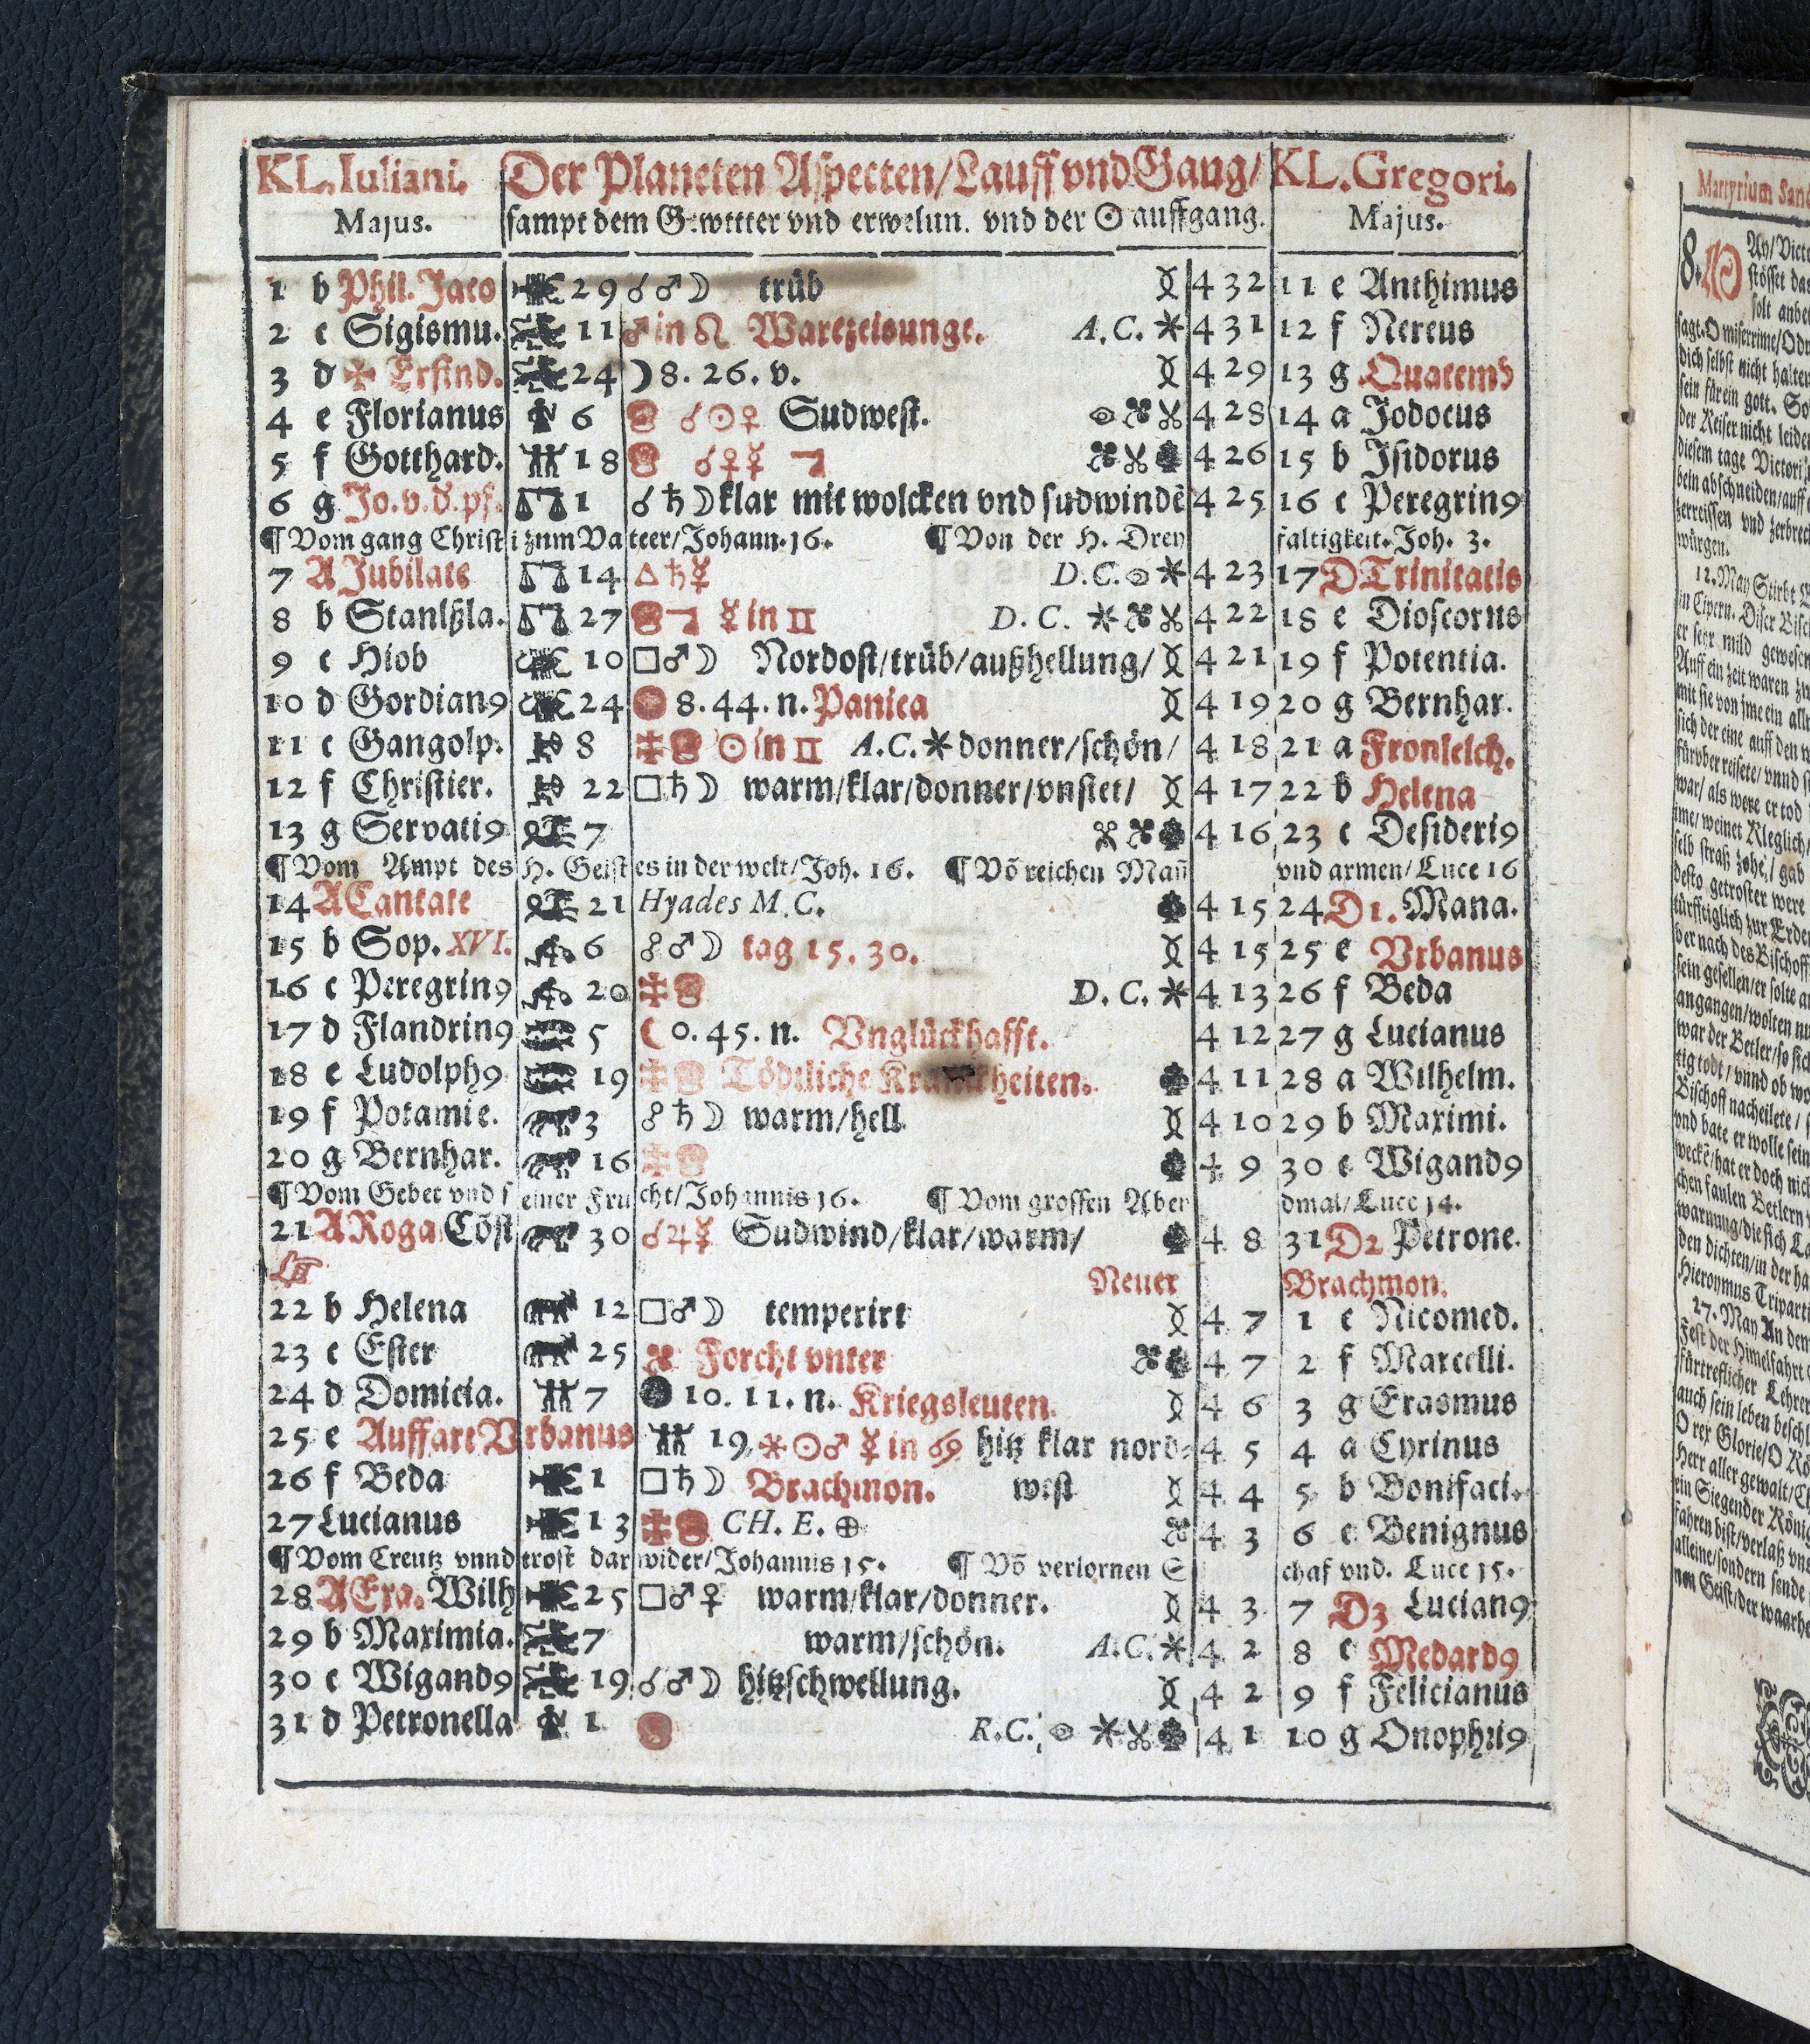 KL. Iuliani. Der Planeten Aspecten/Lauff vnd Gang/ KL. Gregori.
Majus. sampt dem Gewitter vnd erwelun. vnd der ☉ auffgang. Majus.
1 b Phil. Jaco 29 ☌♂☽ trüb 4 32 11 e Anthimus
2 c Sigismu. 11 ♂ in ♌ A.C. 4 31 12 f Nereus
3 d ✠ Erfind. 24 ☽ 8. 26. v. 4 29 13 g Quatemb
4 e Florianus 6 ☌☉♀ Sudwest. 4 28 14 a Jodocus
5 f Gotthard. 18 ☌♀☿ 4 26 15 b Isidorus
6 g Jo. v. d. pf. 1 ☌♄☽ klar mit wolcken vnd sudwindē 4 25 16 c Peregrin9
¶ Vom gang Christi zum Vateer/Johann. 16. ¶ Von der H. Dreyfaltigkeit. Joh. 3.
7 A Jubilate 14 △♄☿ D.C. 4 23 17 D Trinitatis
8 b Stanlßla. 27 ☿ in ♊ D.C. 4 22 18 e Dioscorus
9 c Hiob 10 □♂☽ Nordost/trüb/außhellung/ 4 21 19 f Potentia.
10 d Gordian9 24 8. 44. n. 4 19 20 g Bernhar.
11 e Gangolp. 8 ☉ in ♊ A.C. donner/schön/ 4 18 21 a Fronleich.
12 f Christier. 22 □♄☽ warm/klar/donner/vnstet/ 4 17 22 b Helena
13 g Servati9 7 4 16 23 c Desideri9
¶ Vom Ampt des H. Geistes in der welt/Joh. 16. ¶ Võ reichen Mañ vnd armen/Luce 16
14 A Cantate 21 Hyades M.C. 4 15 24 D 1. Mana.
15 b Sop. XVI. 6 ☍♂☽ tag 15. 30. 4 15 25 e Vrbanus
16 c Peregrin9 20 D.C. 4 13 26 f Beda
17 d Flandrin9 5 ☾ 0. 45. n. Vnglückhafft. 4 12 27 g Lucianus
18 e Ludolph9 19 Tödtliche Kranckheiten. 4 11 28 a Wilhelm.
19 f Potamie. 3 ☍♄☽ warm/hell 4 10 29 b Maximi.
20 g Bernhar. 16 4 9 30 c Wigand9
¶ Vom Gebet vnd seiner Frucht/Johannis 16. ¶ Vom grossen Abendmal/Luce 14.
21 A Roga Cöst 30 ☌♃☿ Sudwind/klar/warm/ 4 8 31 D 2 Petrone.
Neuer Brachmon.
22 b Helena 12 □♂☽ temperirt 4 7 1 e Nicomed.
23 c Ester 25 Forcht vnter 4 7 2 f Marcelli.
24 d Domicia. 7 10. 11. n. Kriegsleuten. 4 6 3 g Erasmus
25 e Auffart Vrbanus 19 ☉♂ ☿ in ♋ hitz klar nord- 4 5 4 a Cyrinus
26 f Beda 1 □♄☽ Brachmon. west 4 4 5 b Bonifaci.
27 Lucianus 13 CH. E. ⊕ 4 3 6 c Benignus
¶ Vom Creutz vnnd trost darwider/Johannis 15. ¶ Võ verlornen Schaf vnd. Luce 15.
28 A Exa. Wilh 25 □♂♀ warm/klar/donner. 4 3 7 D 3 Lucian9
29 b Maximia. 7 warm/schön. A.C. 4 2 8 e Medard9
30 c Wigand9 19 ☌♂☽ hitzschwellung. 4 2 9 f Felicianus
31 d Petronella 1 R.C. 4 1 10 g Onophri9